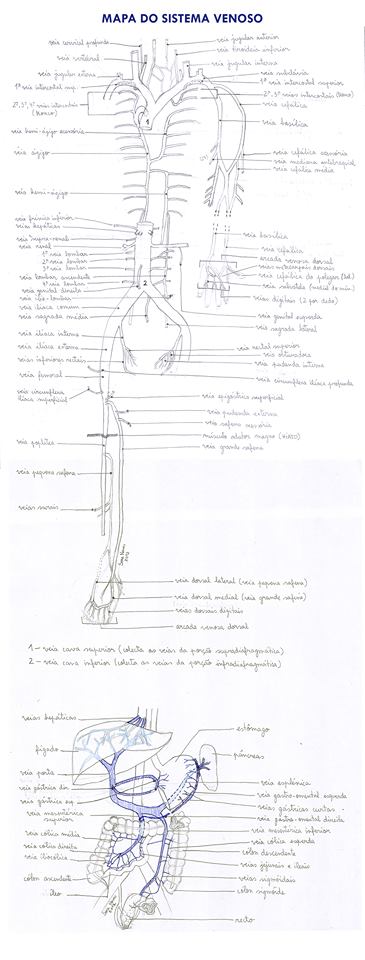 MAPA DO SISTEMA VENOSO
veia cervical profunda
veia vertebral
veia jugular externa
1ª veia intercostal sup.
2ª, 3ª, 4ª veias intercostais
(tronco)
veia hemi-ázigo acessória
veia ázigo
veia hemi-ázigo
veia frénica inferior
veias hepáticas
veia supra-renal
veia renal
1ª veia lombar
2ª veia lombar
3ª veia lombar
veia lombar ascendente
veia genital direita
veia ílio-lombar
veia ilíaca comum
veia sagrada média
veia ilíaca interna
veia ilíaca externa
veias inferiores rectais
veia femoral
veia circunflexa
ilíaca superficial
veia poplítea
veia pequena safena
veias surais
veia jugular anterior
veia tiroideia inferior
veia jugular interna
veia subclávia
1ª veia intercostal superior
2ª, 3ª veias intercostais (tronco)
veia cefálica
veia basílica
veia cefálica acessória
veia mediana antebraquial
veia cefálica média
veia basílica
veia cefálica
arcada venosa dorsal
veias metacarpais dorsais
veia cefálica do polegar
veias digitais (2 por dedo)
veia genital esquerda
veia sagrada lateral
veia rectal superior
veia obturadora
veia pudenda interna
veia circunflexa ilíaca profunda
veia epigástrica superficial
veia pudenda externa
veia safena acessória
músculo adutor magno (HIATO)
veia grande safena
veia dorsal lateral (veia pequena safena)
veia dorsal medial (veia grande safena)
veias dorsais digitais
arcada venosa dorsal
1 - veia cava superior (colecta as veias da porção supradiafragmática)
2 - veia cava inferior (colecta as veias da porção infradiafragmática)
veias hepáticas
fígado
veia porta
veia gástrica dir.
veia gástrica esq.
veia mesentérica
superior
veia cólica média
veia cólica direita
veia ileocólica
cólon ascendente
íleo
estômago
pâncreas
veia esplénica
veia gastro-omental esquerda
veias gástricas curtas
veia gastro-omental direita
veia mesentérica inferior
veia cólica esquerda
cólon descendente
veias jejunais e ileais
veias sigmoideias
cólon sigmóide
recto